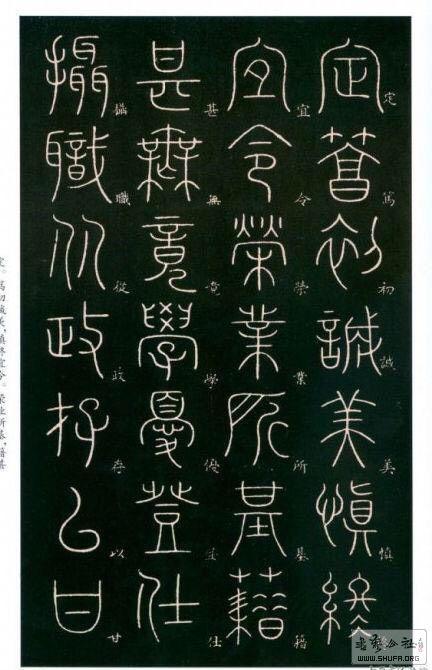 定篤初誠美慎終
定篤初誠美慎
宜令榮業所基籍
宜令榮業所基籍
甚無竟學優登仕
甚無竟學優登仕
攝職從政存以甘
攝職從政存以甘
定。篤初誠美,慎終宜令。榮业所基,籍甚
WWW.SHUFA.ORG